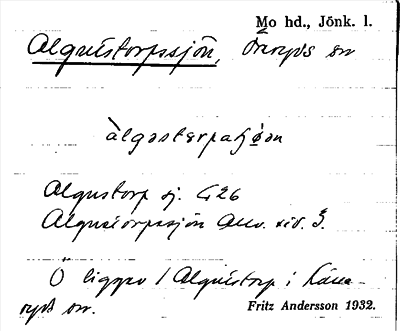 Mo hd., Jönk. l.
Alqvistorpssjön, Öreryds sn
àlgəstərpaʃǿən
Algustorp sj. G26
Algustorpasjön Allv. sid. 3.
Ö ligger i Alqvistorp i Käve-
ryds sn.
Fritz Andersson 1932.